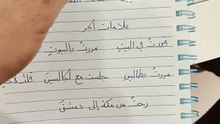 علامات الجر
مررت في البيت مررت بالبيوت
مررت بطالبين جلست مع الجالسين
رجعت من مكة إلى دمشق